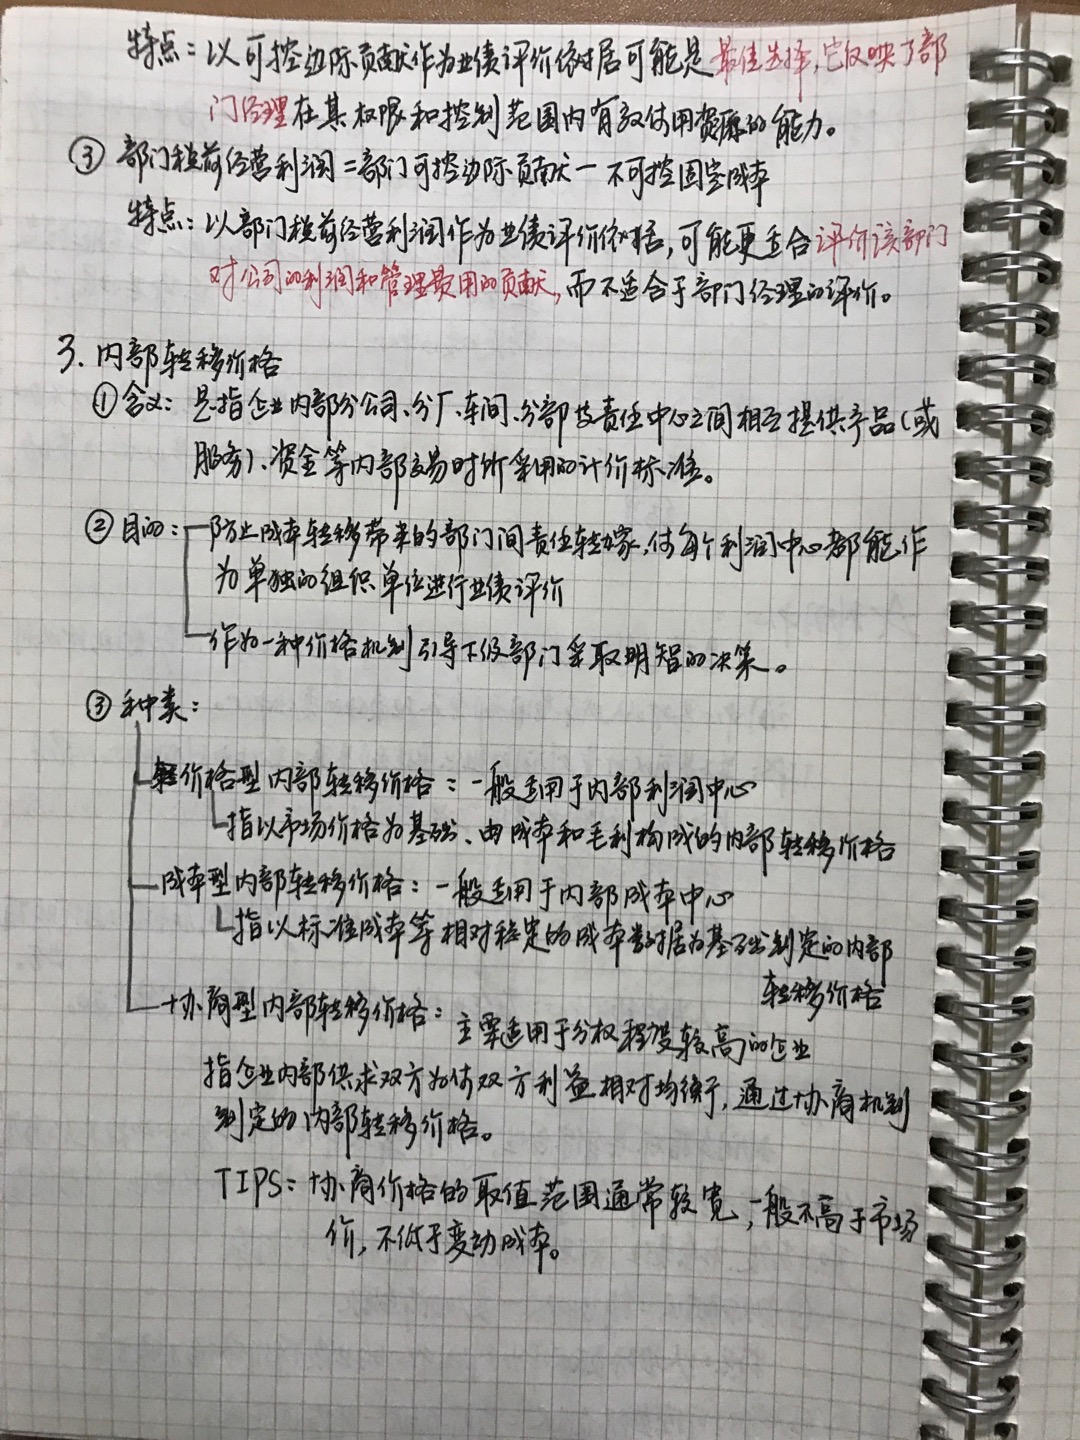 特点：以可控边际贡献作为业绩评价依据可能是最佳选择，它反映了部
门经理在其权限和控制范围内有效使用资源的能力。
③ 部门税前经营利润＝部门可控边际贡献－不可控固定成本
特点：以部门税前经营利润作为业绩评价依据，可能更适合评价该部门
对公司的利润和管理费用的贡献，而不适合于部门经理的评价。
3. 内部转移价格
① 含义：是指企业内部分公司、分厂、车间、分部及责任中心之间相互提供产品（或
服务）、资金等内部交易时所采用的计价标准。
② 目的：防止成本转移带来的部门间责任转嫁，使每个利润中心都能作
为单独的组织单位进行业绩评价
作为一种价格机制引导下级部门采取明智的决策。
③ 种类：
价格型内部转移价格：一般适用于内部利润中心
指以市场价格为基础、由成本和毛利构成的内部转移价格
成本型内部转移价格：一般适用于内部成本中心
指以标准成本等相对稳定的成本数据为基础制定的内部
转移价格
协商型内部转移价格：主要适用于分权程度较高的企业
指企业内部供求双方为使双方利益相对均衡，通过协商机制
制定的内部转移价格。
TIPS：协商价格的取值范围通常较宽，一般不高于市场
价，不低于变动成本。